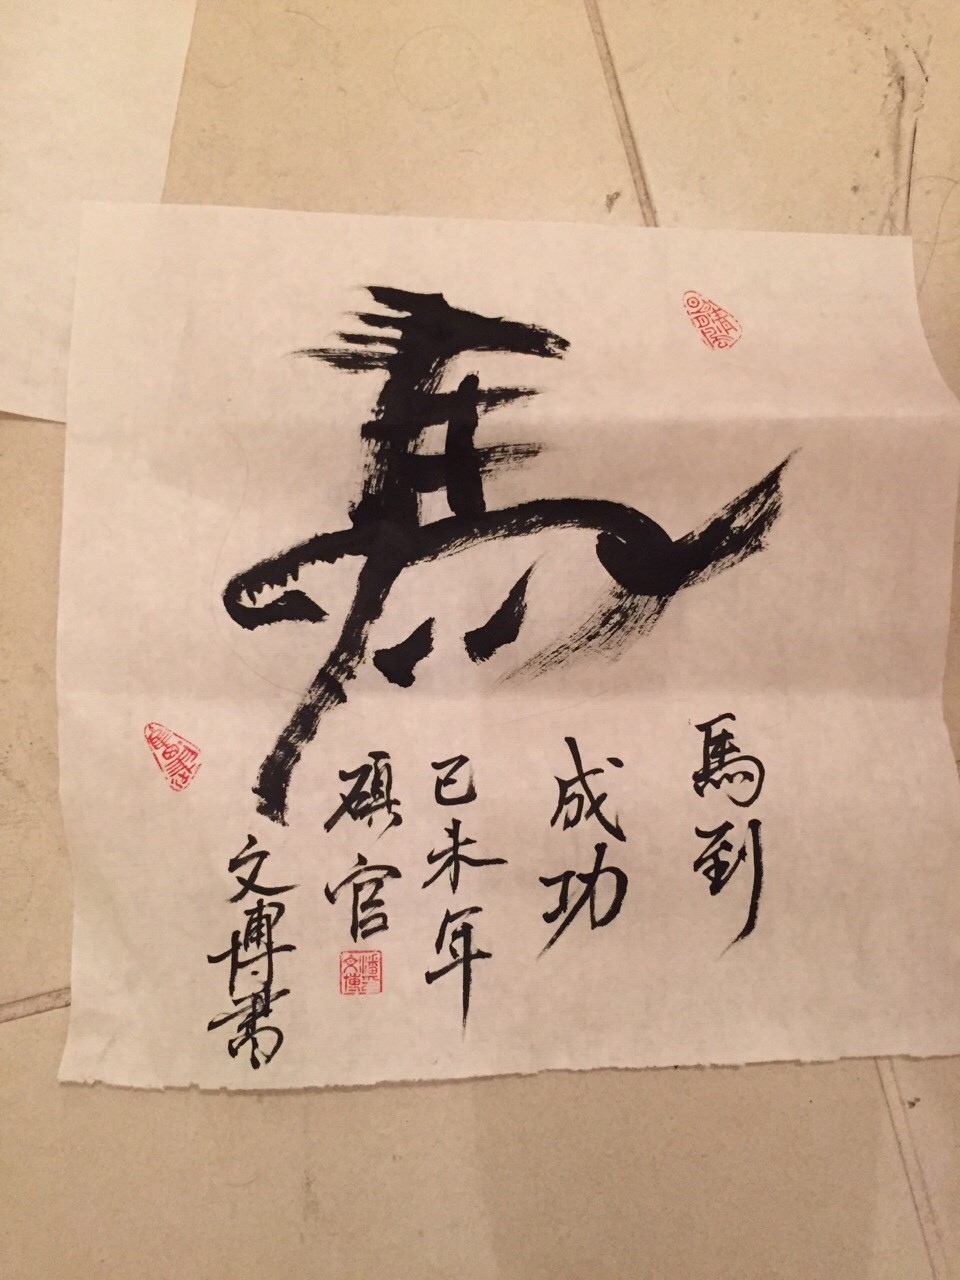 馬
馬到
成功
己未年
碩官
文博書